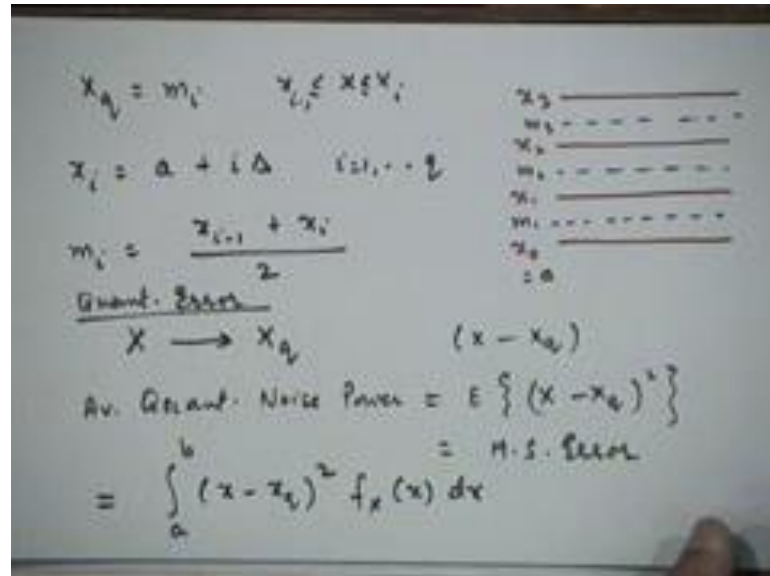 x_q = m_i    x_{i-1} ≤ x ≤ x_i
x_i = a + i Δ    i=1, . . q
m_i = (x_{i-1} + x_i) / 2
Quant. Error
X → X_q    (x - x_q)
Av. Quant. Noise Power = E { (X - X_q)² }
= M.S. Error
= ∫_a^b (x - x_q)² f_x(x) dx
x_3
m_3
x_2
m_2
x_1
m_1
x_0
= a